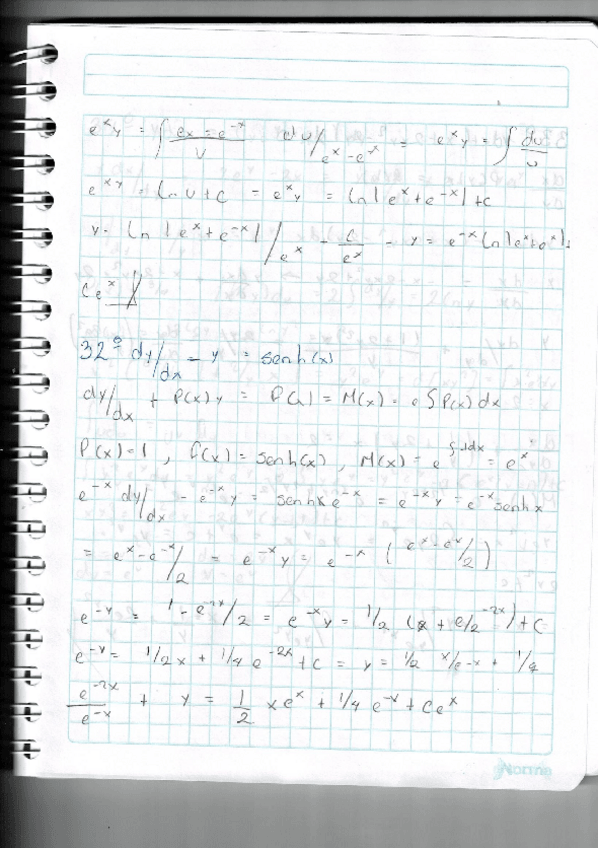 e^x y = ∫ ex = e^-x / v du / e^x - e^-x = e^x y = ∫ du / u
e^x y = ln u + c = e^x y = ln | e^x + e^-x | + c
y = ln | e^x + e^-x | / e^x + c / e^x - y = e^-x ln | e^x + e^-x | +
C e^-x
32° dy/dx - y = senh(x)
dy/dx + P(x) y = f(x) = M(x) = e ∫ P(x) dx
P(x) = 1 , f(x) = senh(x) , M(x) = e^∫-1dx = e^x
e^-x dy/dx - e^-x y = senhx e^-x = e^-x y = e^-x senh x
= e^x - e^-x / 2 = e^-x y = e^-x ( e^x - e^x / 2 )
e^-y = 1 - e^-2x / 2 = e^-x y = 1/2 (x + e/2^-2x) + C
e^-y = 1/2 x + 1/4 e^-2x + C = y = 1/2 x/e^-x + 1/4
e^-2x / e^-x + y = 1/2 x e^x + 1/4 e^-x + C e^x
Norma